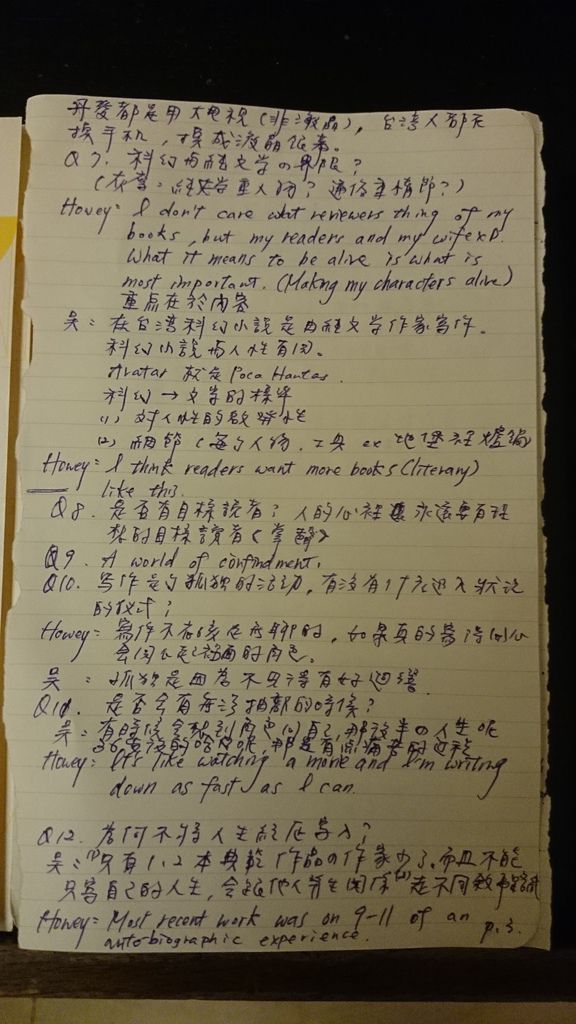 開發都是用大电視(非液晶), 台湾人都在
換手机, 換成液晶
Q7. 科幻与純文学の界限?
(在意: 純文学重人物? 通俗重情節?)
Howey: I don't care what reviewers thing of my
books, but my readers and my wife xD.
What it means to be alive is what is
most important. (Making my characters alive)
重点在於內容
吳: 在台湾科幻小說是由純文学作家寫作。
科幻小說与人性有関。
Avatar 就是 Poca Hantas.
科幻 → 文学的標準
(1) 对人性的啟發性
(2) 細節 (每个人物, 工具 ex 地堡
Howey: I think readers want more books (literary)
like this.
Q8. 是否有目標読者? 人的心裡 永遠要有理
想的目標読者
Q9. A world of confindment.
Q10. 写作是个孤独的活动, 有没有什么進入狀況
的仪式?
Howey: 寫作不應該是无聊的, 如果真的寫得開心
会関心 裡面的角色。
吳: 孤独是
Q11. 是否会有 的時候?
吳: 有時候会想到角色 自己, 那 半の人生呢
Howey: It's like watching a movie and I'm writing
down as fast as I can.
Q12. 為何不將人生經歷寫入?
吳: (1) 只有1、2本典範作品の作家少了, 而且不能
只寫自己的人生, 会跟他人 关係 (2) 走不同敘事
Howey: Most recent work was on 9-11 of an
autobiographic experience.
p.3.